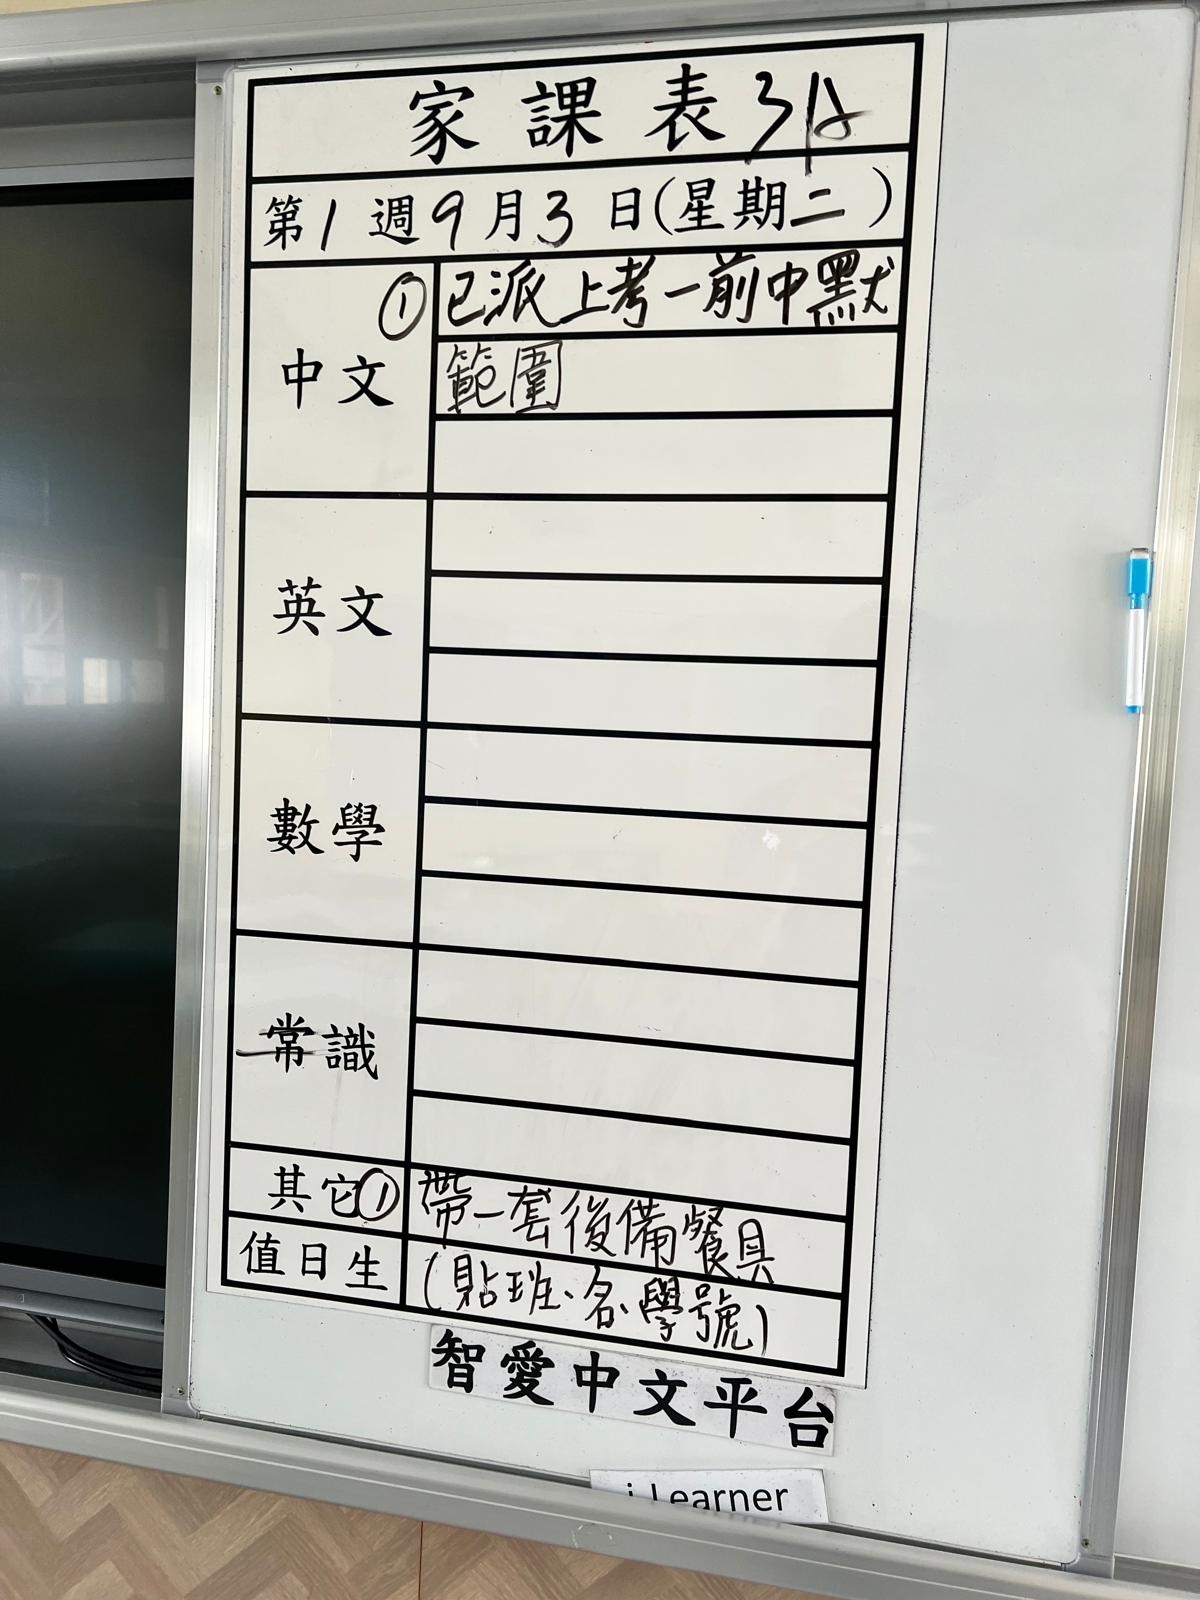 家課表 3A
第1週9月3日(星期二)
中文 ① 已派上考一前中默
範圍
英文
數學
常識
其它 ① 帶一套後備餐具
值日生 (貼班、名、學號)
智愛中文平台
i Learner